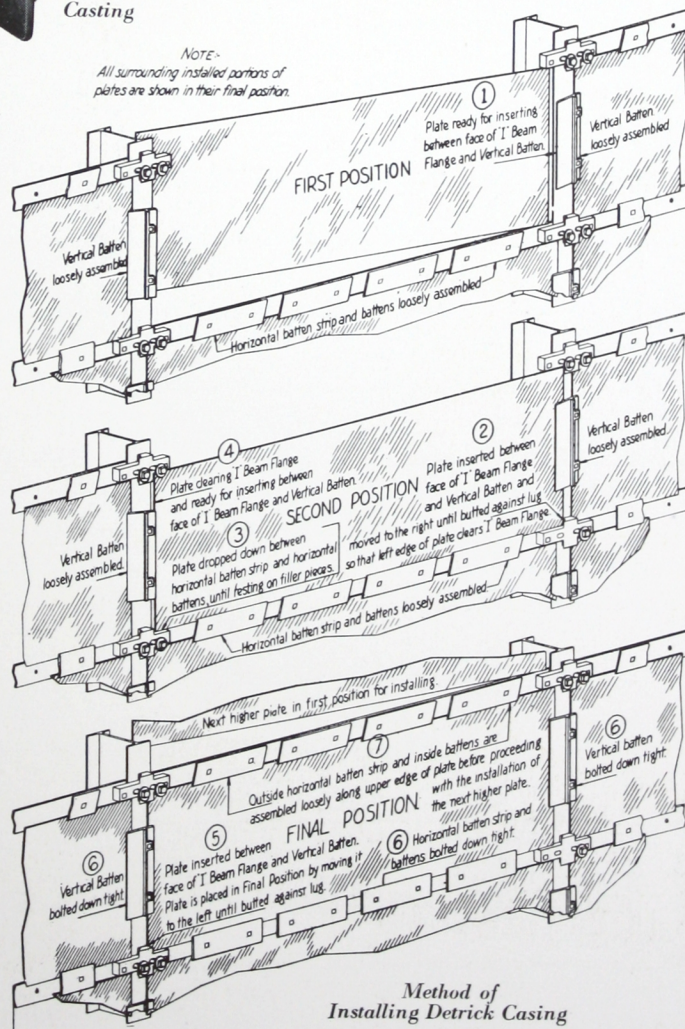 Casting
NOTE:-
All surrounding installed portions of
plates are shown in their final position.
1
Plate ready for inserting
between face of "I" Beam
Flange and Vertical Batten.
FIRST POSITION
Vertical Batten
loosely assembled
Vertical Batten
loosely assembled
Horizontal batten strip and battens loosely assembled
4
Plate clearing "I" Beam Flange
and ready for inserting between
face of "I" Beam Flange and Vertical Batten.
2
Plate inserted between
face of "I" Beam Flange
and Vertical Batten and
moved to the right until butted against lug
so that left edge of plate clears "I" Beam Flange.
SECOND POSITION
3
Plate dropped down between
horizontal batten strip and horizontal
battens, until resting on filler pieces.
Vertical Batten
loosely assembled.
Vertical Batten
loosely assembled.
Horizontal batten strip and battens loosely assembled.
Next higher plate in first position for installing.
7
Outside horizontal batten strip and inside battens are
assembled loosely along upper edge of plate before proceeding
with the installation of
the next higher plate.
FINAL POSITION
5
Plate inserted between
face of "I" Beam Flange and Vertical Batten.
Plate is placed in Final Position by moving it
to the left until butted against lug.
6 Horizontal batten strip and
battens bolted down tight.
6
Vertical Batten
bolted down tight
6
Vertical batten
bolted down tight.
Method of
Installing Detrick Casing